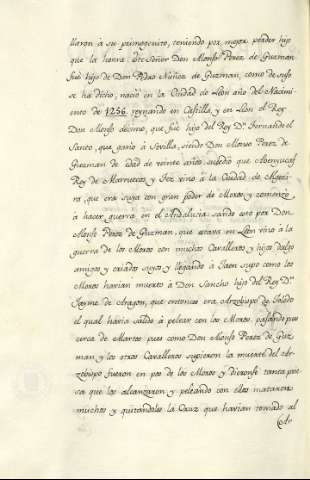 llaron a su primogenito, teniendo por mejor perder hijo
que la honra. Este Señor Don Alonso Perez de Guzman
fue hijo de Don Pedro Nuñez de Guzman, como de suso
se ha dicho, nació en la Ciudad de Leon año del Nacimi-
ento de 1256. reynando en Castilla y en Leon el Rey
Don Alonso decimo, que fue hijo del Rey Dn. Fernando el
Santo, que ganó a Sevilla, siendo Don Alonso Perez de
Guzman de edad de veinte años, subcedió que Abenyucaf
Rey de Marruecos y Fez vino á la Ciudad de Algezi-
ra, que era suya con gran poder de Moros y comenzó
á hacer guerra en el Andalucia: savido esto por Don
Alonso Perez de Guzman, que estava en Leon vino á la
guerra de los Moros con muchos Cavalleros y hijos dalgo
amigos y criados suyos y llegando á Jaen supo como los
Moros havian muerto á Don Sancho hijo del Rey Dn.
Jayme de Aragon, que entonces era Arzobispo de Toledo
el qual havia salido á pelear con los Moros, pasando pues
cerca de Martos pues como Don Alonso Perez de Guz
man y los otros Cavalleros supieron la muerte del Ar-
zobispo fueron en pos de los Moros y dieronse tanta prie
sa que los alcanzaron y peleando con ellos mataron
muchos y quitandoles la Cruz que havian tomado al